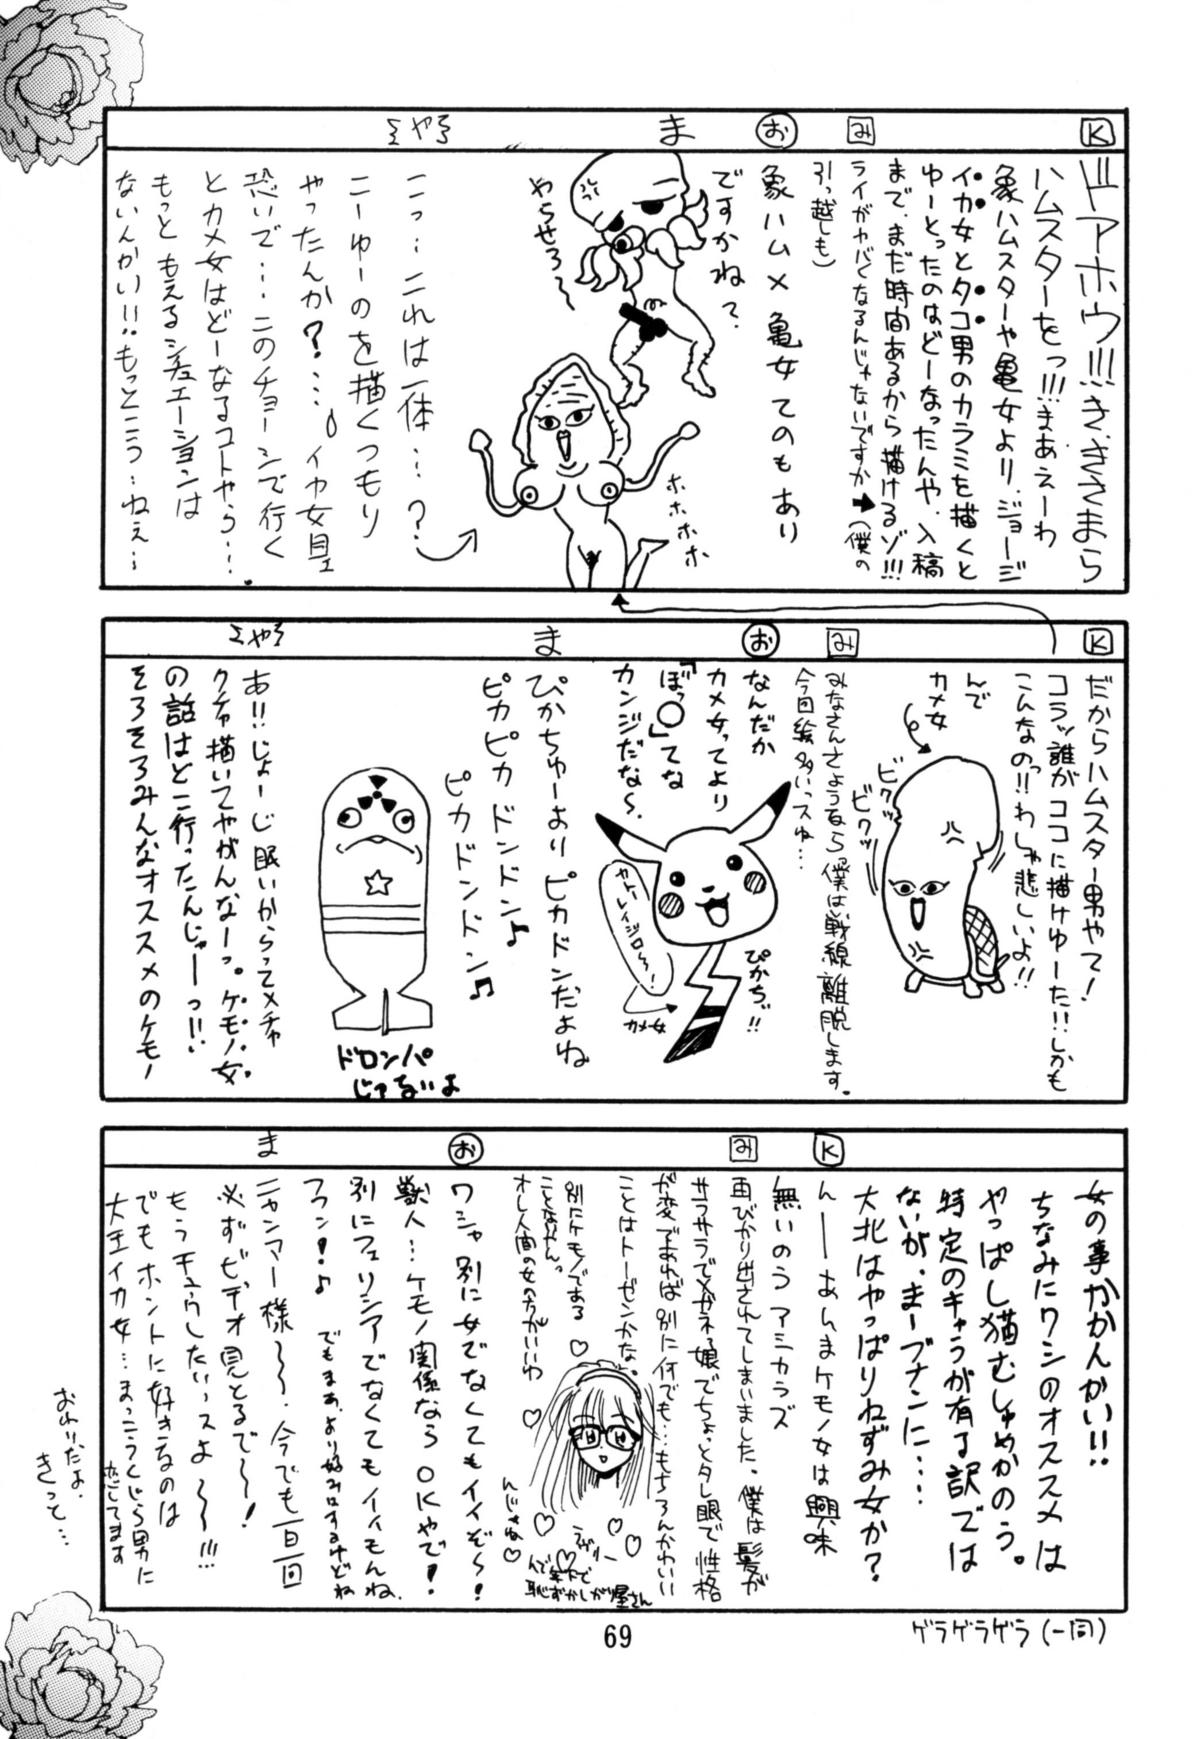 K
ドアホウ!!!き、ききさまら
ハムスターをっ!!!まあえーわ
象ハムスターや亀女より、ジョージ
イカ女とタコ男のカラミを描くと
ゆーとったのはどーなったんや、入稿
まで、まだ時間あるから描けるゾ!!!
み
ライがヤバくなるんじゃないですか➡(僕の
引っ越しも)
お
象ハム×亀女てのもあり
ですかね?
やらせろ〜
ホホホホ
ま
こっ…これは一体…?
こーゆーのを描くつもり
やったんか?…イカ女具
恐いで…このチョーシで行く
とカメ女はどーなるコトやら…
もっともえるシチュエーションは
ないんかい!!もっとこう…ねぇ…
ミや
K
だからハムスター男やて!
コラッ誰がココに描けゆーた!!しかも
こんなのっ!!わしゃ悲しいよ!!
んで
カメ女
ビクッ
ビクッ
み
みなさんさようなら、僕は戦線離脱します。
今回絵多いっスね…
お
なんだか
カメ女ってより
「ぼっ〇」てな
カンジだな〜。
ぴかぢゅ!!
カメ女
ま
ぴかちゅーよりピカドンだよね
ピカピカドンドン♪
ピカドンドン♫
ドロンパ
じゃないよ
ミや
あ!!じょーじ眠いからってメチャ
クチャ描いてやがんなーっ。ケモノ女
の話はどこ行ったんじゃーっ!!
そろそろみんなオススメのケモノ
女の事かかんかい!!
ちなみにワシのオススメは
やっぱし猫むしゅめかのう。
特定のキャラが有る訳では
ないが、まーブナンに…
大北はやっぱりねずみ女か?
K
んーーあんまケモノ女は興味
無いのう アシカラズ
み
再びかり出されてしまいました。僕は髪が
サラサラでメガネっ娘でちょっとタレ眼で性格
が変であれば別に何でも…もちろんかわいい
ことはトーゼンかな。
別にケモノである
ことないやんっ
オレ人間の女の方がいいわ
んじゃね♡
んで年下で
恥ずかしがり屋さん
お
ワシャ別に女でなくてもイイぞ〜!
獣人…ケモノ関係ならOKやで!
別にフェリシアでなくてもイイもんね。
フフン!♪
でもまあ、より好みはするけどね
ま
ニャンマー様〜、今でも一日一回
必ずビデオ見とるで〜!
もうチュウしたいっスよ〜〜!!!
でもホントに好きなのは
大王イカ女…まっこうくじら男に
恋してます
おわりだよ。
きっと…
ゲラゲラゲラ(一同)
69